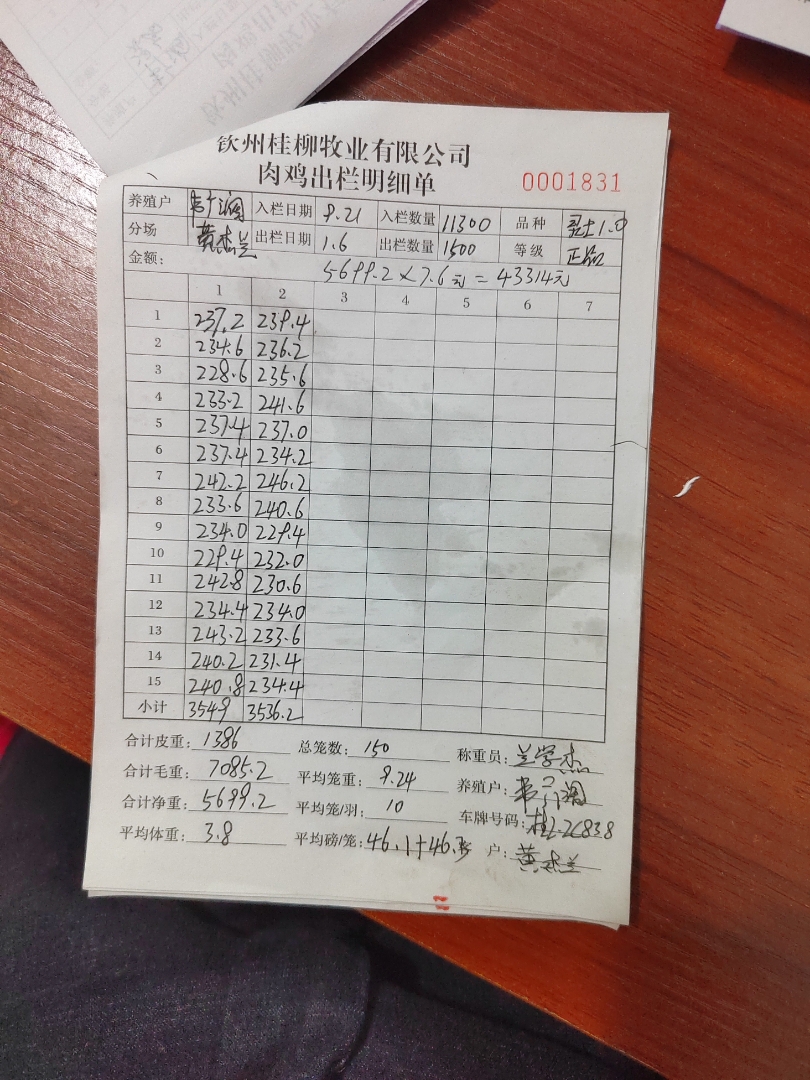 钦州桂柳牧业有限公司
肉鸡出栏明细单 0001831
养殖户 入栏日期 9.21 入栏数量 11300 品种 1.0
分场 黄杰兰 出栏日期 1.6 出栏数量 1500 等级 正品
金额: 5699.2×7.6元=43314元
1 2 3 4 5 6 7
1 237.2 239.4
2 234.6 236.2
3 228.6 235.6
4 233.2 241.6
5 237.4 237.0
6 237.4 234.2
7 242.2 246.2
8 233.6 240.6
9 234.0 229.4
10 229.4 232.0
11 242.8 230.6
12 234.4 234.0
13 243.2 233.6
14 240.2 231.4
15 240.8 234.4
小计 3549 3536.2
合计皮重: 1386 总笼数: 150 称重员: 兰学杰
合计毛重: 7085.2 平均笼重: 9.24 养殖户:
合计净重: 5699.2 平均笼/羽: 10 车牌号码:
平均体重: 3.8 平均磅/笼: 46.1+46. 户: 黄杰兰